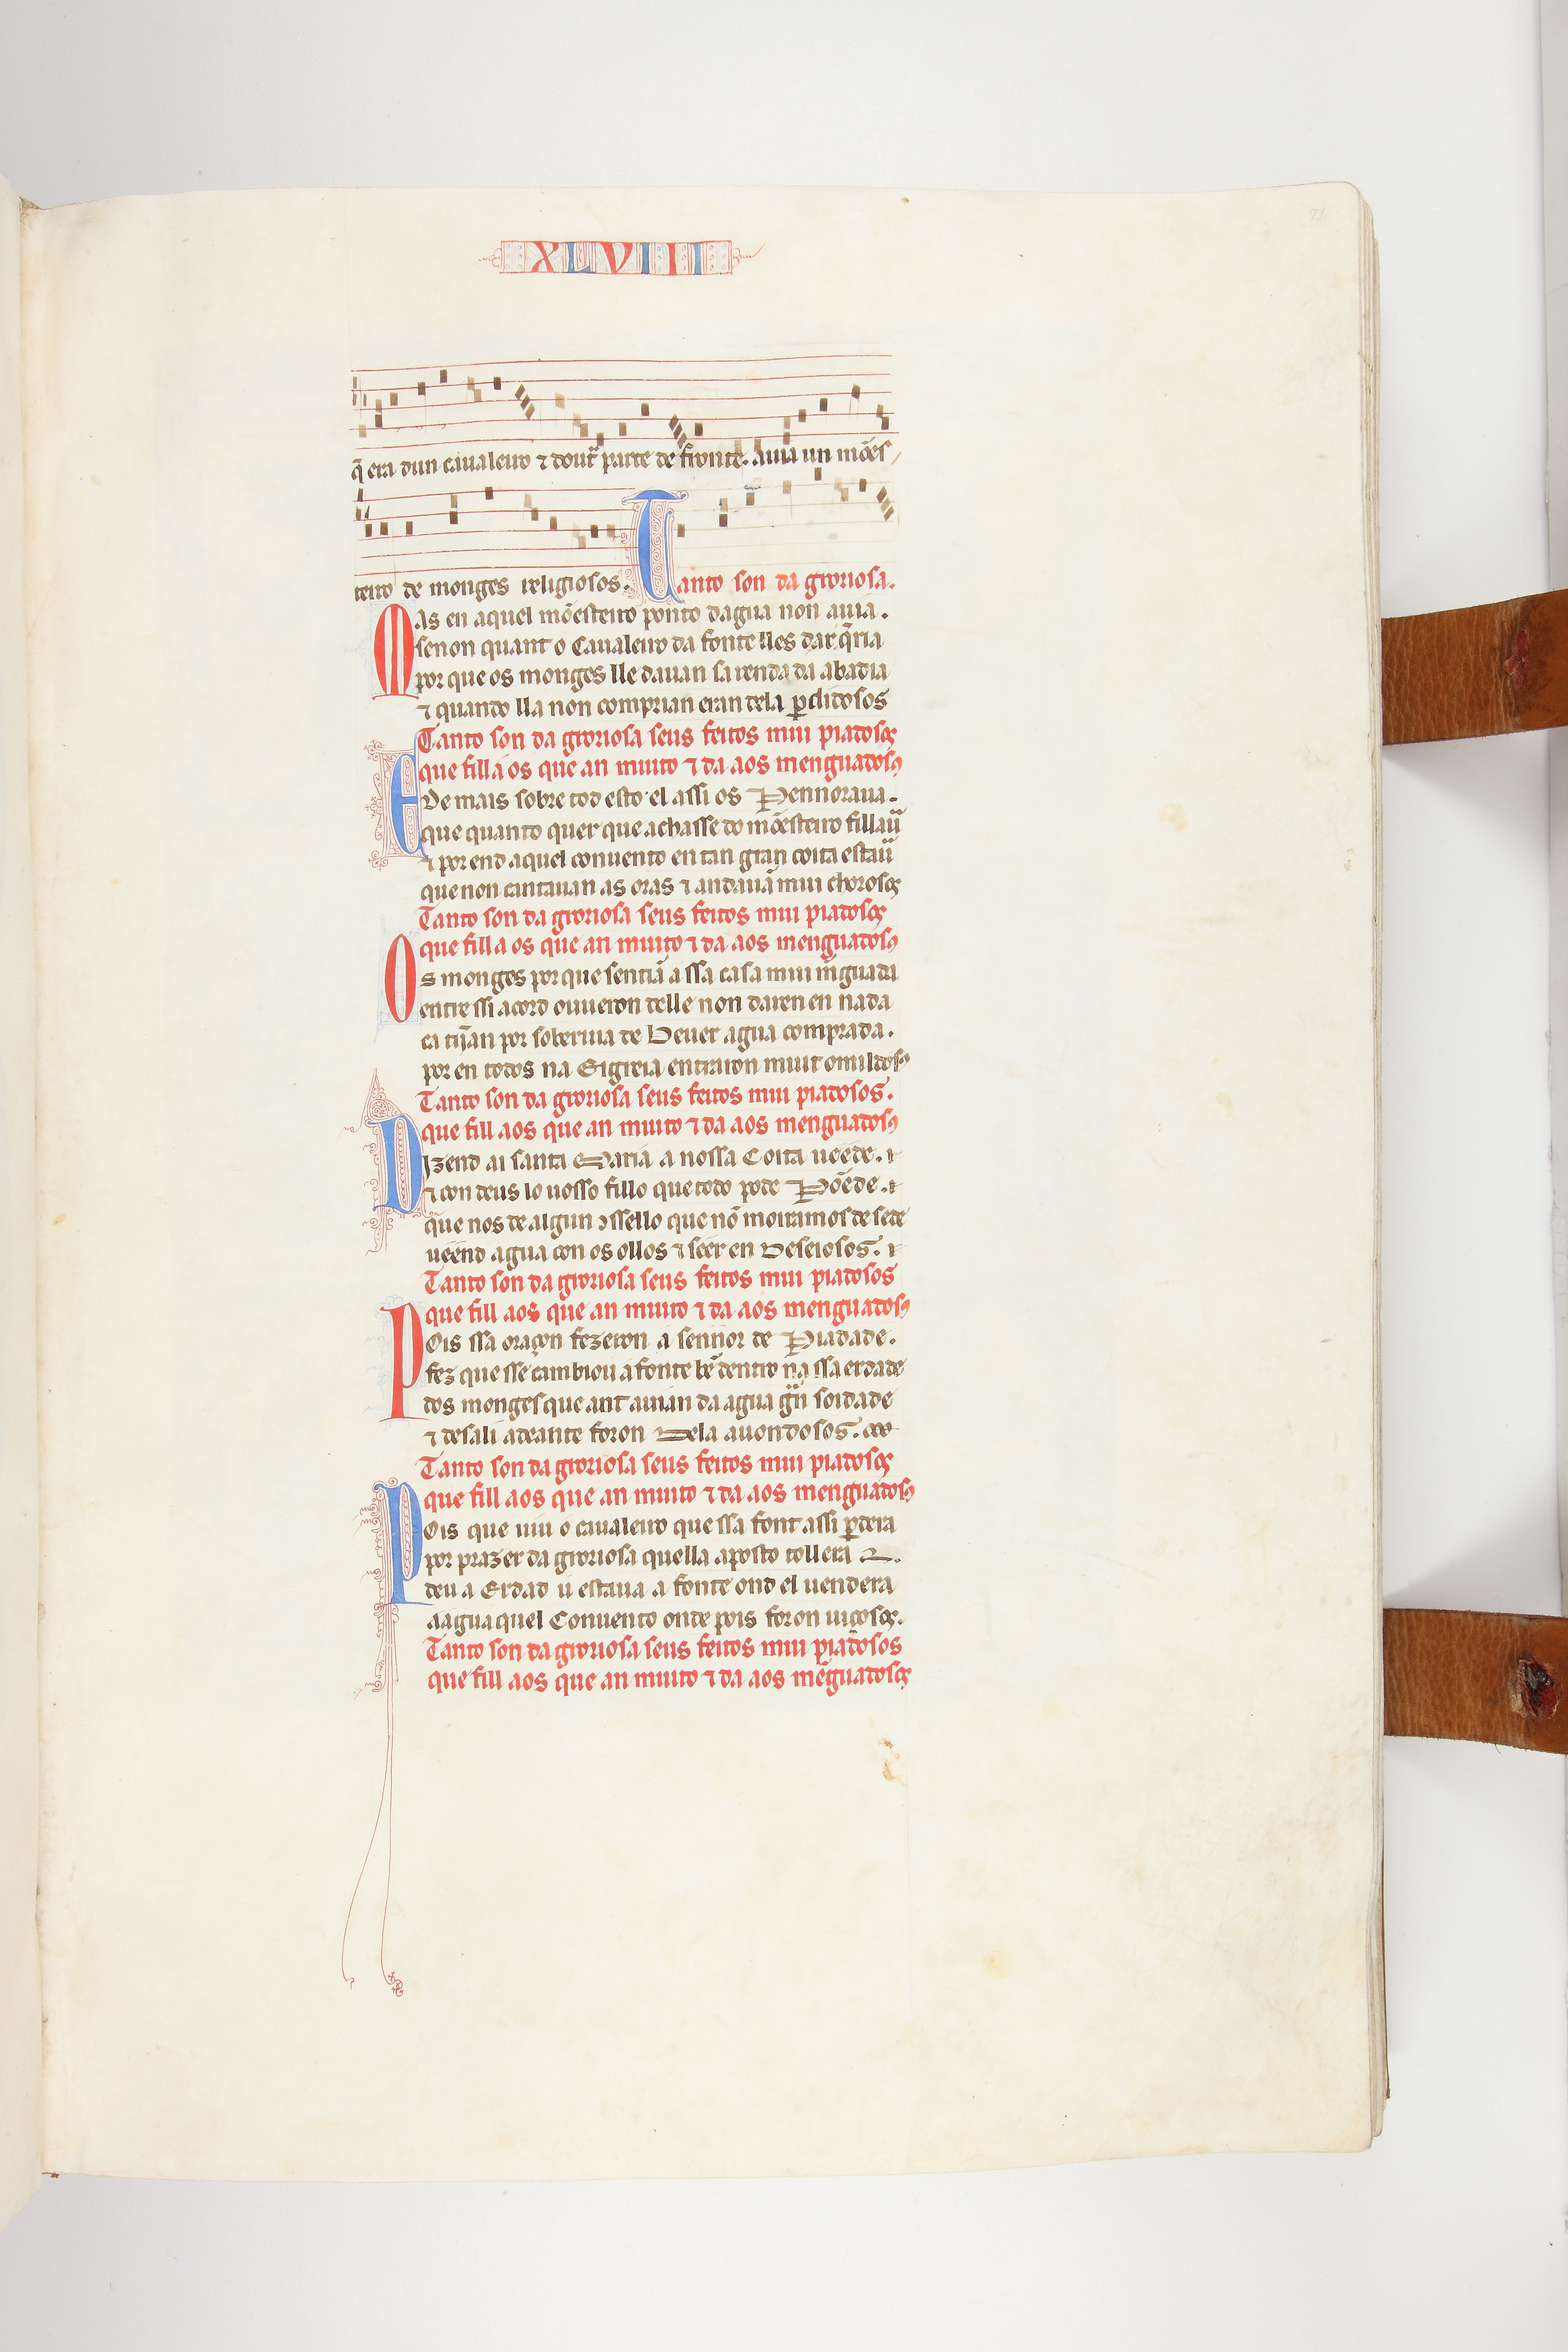 XLVIII
q̃ era dun caualeiro ⁊ doutr̃ parte de fronte. Auia un mões/
teiro de monges religiosos. Tanto son da groriosa.
Mas en aquel mõesteiro ponto dagua non auia.
senon quant o Caualeiro da fonte lles dar q̃ria
por que os monges lle dauan sa renda da abadia
⁊ quando lla non comprian eran dela ꝑdidosos
Tanto son da groriosa seus feitos mui piadosos
que fill a os que an muito ⁊ da aos menguadosꝰ
E de mais sobre tod esto el assi os Pennoraua.
que quanto quer que achasse do mõesteiro fillaũ
⁊ por end aquel conuento en tan gran coita estaũ
que non cantauan as oras ⁊ andauã mui chorosos
Tanto son da groriosa seus feitos mui piadosos
que fill a os que an muito ⁊ da aos menguadosꝰ
Os monges por que sentiã a ssa casa mui mẽguada
entre ssi acord ouueron delle non daren en nada
ca tijñan por soberuia de Beuer agua comprada.
por en todos na Eigreia entraron muit omildosꝰ
Tanto son da groriosa seus feitos mui piadosos.
que fill aos que an muito ⁊ da aos menguadosꝰ
Dizend ai santa Maria a nossa Coita ueede.
⁊ con deus lo uosso fillo que todo pode Põede.
que nos de algun ꝯssello que nõ moiramos de sede
ueend agua con os ollos ⁊ seer en Deseiosos.
Tanto son da groriosa seus feitos mui piadosos
que fill aos que an muito ⁊ da aos menguadosꝰ
Pois ssa oraçon fezeron a sennor de Piadade.
fez que sse cambiou a fonte bẽ dentro na ssa erdade
dos monges que ant auian da agua gñ soidade
⁊ desali adeante foron Dela auondosos.
Tanto son da groriosa seus feitos mui piadosos
que fill aos que an muito ⁊ da aos menguadosꝰ
Pois que uiu o caualeiro que ssa font assi ꝑdera
por prazer da groriosa quella aposto tollera
deu a Erdad u estaua a fonte ond el uendera
a agua quel Conuento onde pois foron uiçosos.
Tanto son da groriosa seus feitos mui piadosos
que fill aos que an muito ⁊ da aos mẽguadosos